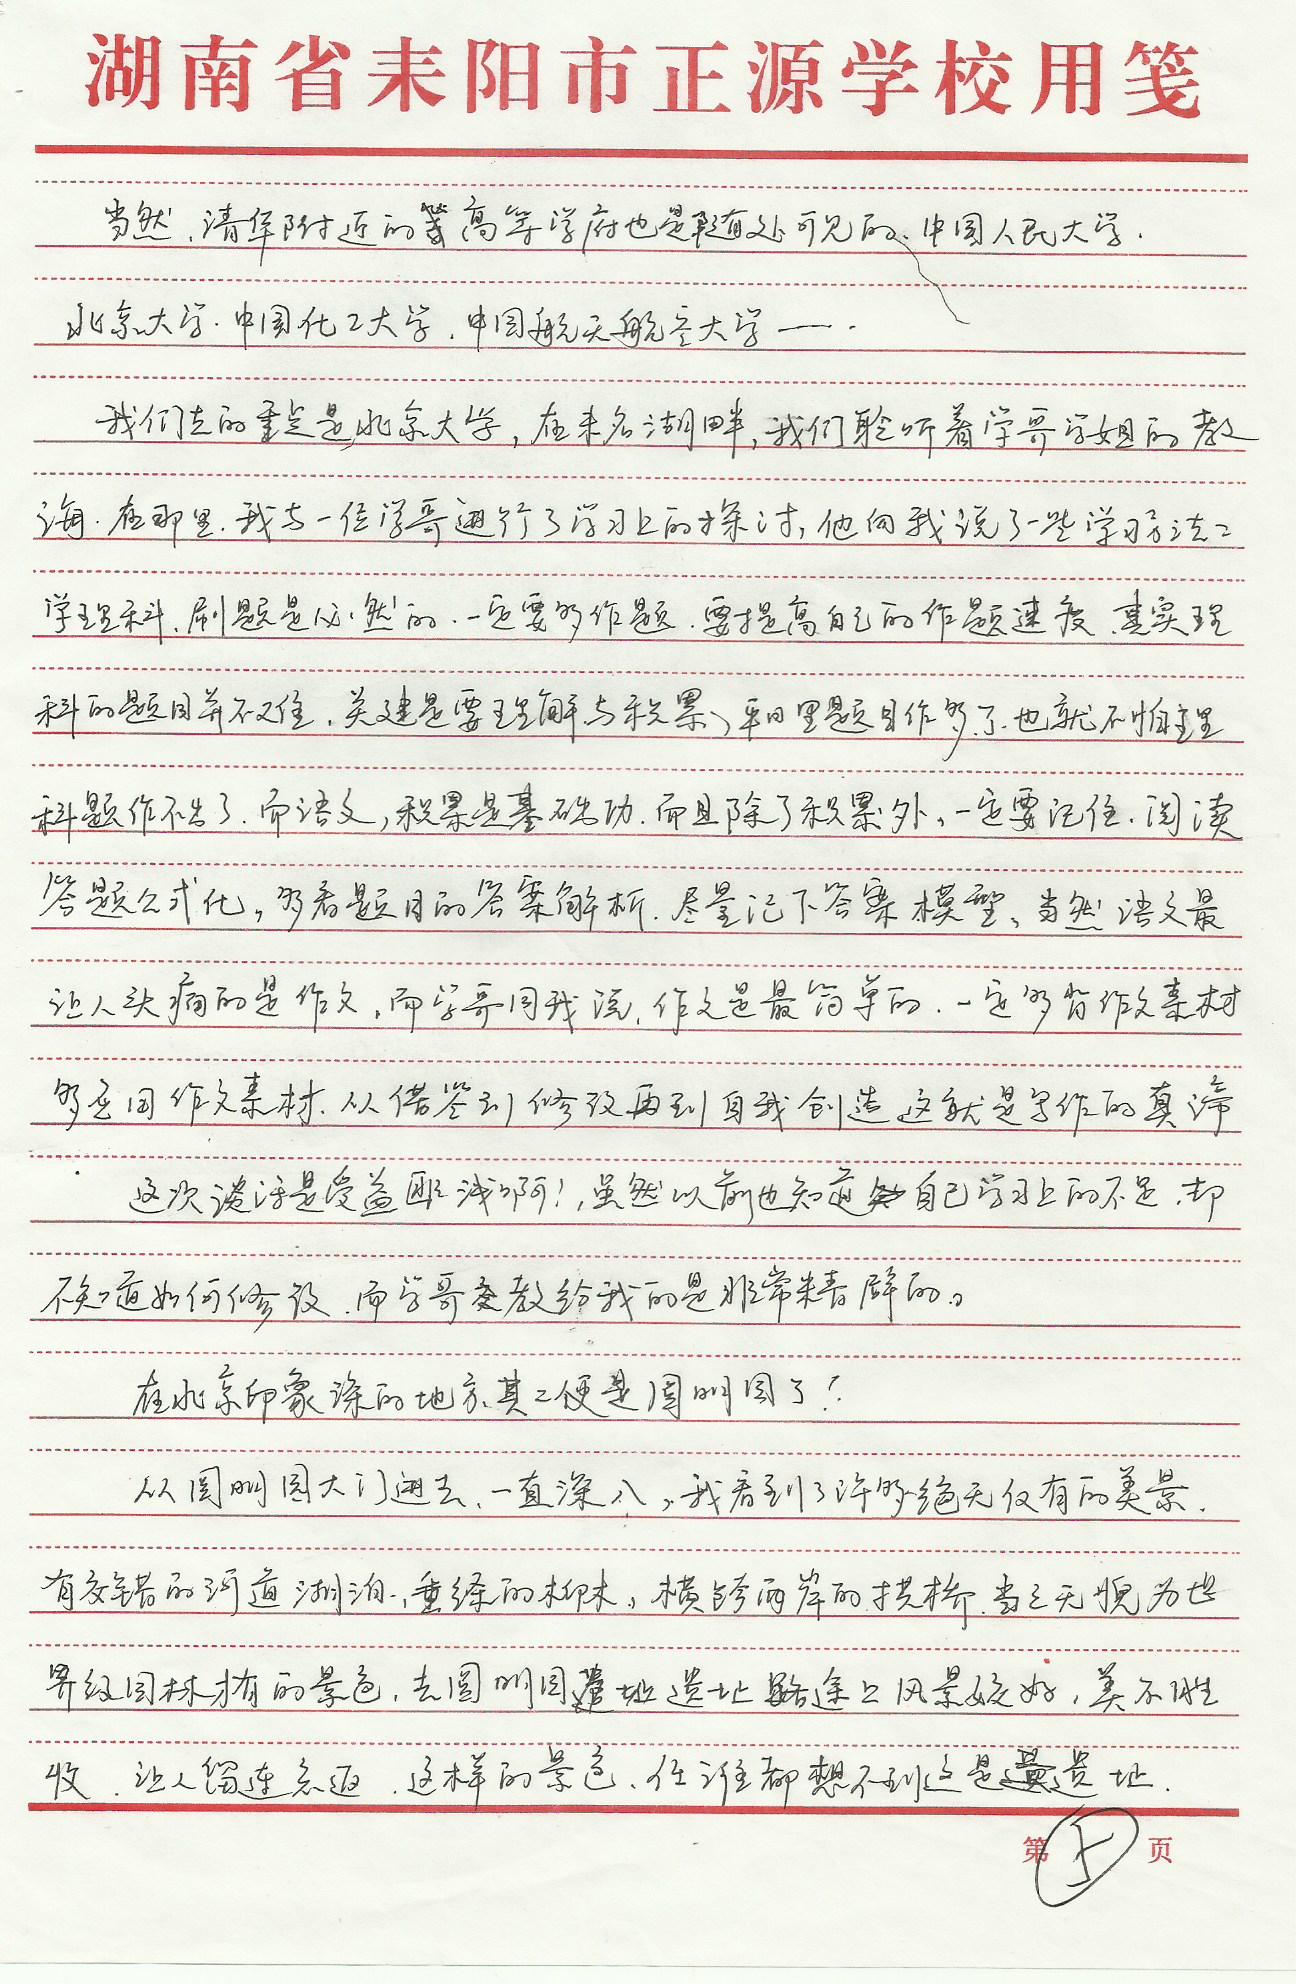 湖南省耒阳市正源学校用笺
当然，清华附近的高等学府也是随处可见的、中国人民大学.
北京大学.中国化工大学.中国航天航空大学——.
我们去的重点是北京大学，在未名湖畔，我们聆听着学哥学姐的教
诲.在那里.我与一位学哥进行了学习上的探讨，他向我说了一些学习方法：
学理科、刷题是必然的.一定要多作题.要提高自己的作题速度.其实理
科的题目并不难，关键是要理解与积累，平日里题目作多了.也就不怕理
科题作不出了.而语文，积累是基础功.而且除了积累外，一定要记住.阅读
答题公式化，多看题目的答案解析.尽量记下答案模型、当然语文最
让人头痛的是作文，而学哥同我说，作文是最简单的.一定多背作文素材
多运用作文素材.从借鉴到修改再到自我创造这就是写作的真谛
这次谈话是受益匪浅啊！，虽然以前也知道自己学习上的不足.却
不知道如何修改.而学哥教给我的是非常精辟的。
在北京印象深的地方、其二便是圆明园了！
从圆明园大门进去、一直深入，我看到了许多绝无仅有的美景.
有交错的河道湖泊、垂绦的柳木，横跨两岸的拱桥.当之无愧为世
界级园林才有的景色，去圆明园遗址路途上风景姣好，美不胜
收.让人留连忘返.这样的景色、任谁都想不到这是遗址.
第5页